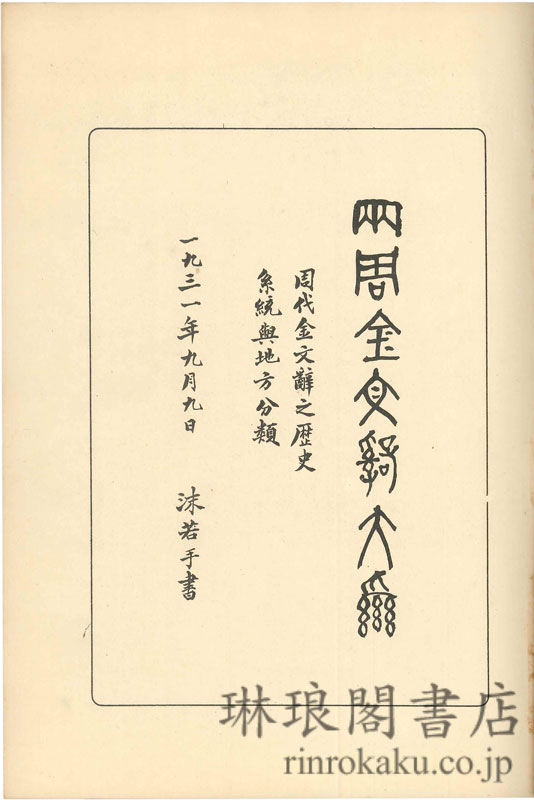 兩周金文辭大系
周代金文辭之歷史
系統與地方分類
一九三一年九月九日
沫若手書
琳琅閣書店
rinrokaku.co.jp